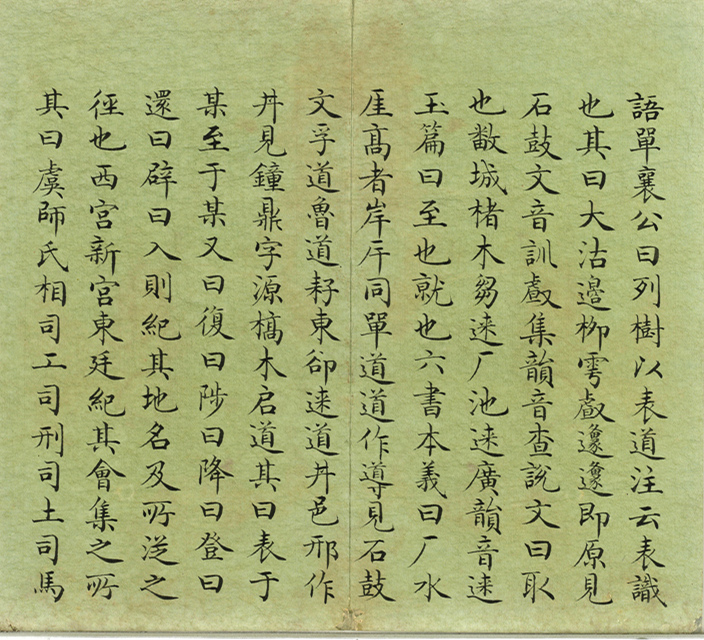 語單襄公曰列樹以表道注云表識
也其曰大沽邊栁雩㪥邍邍即原見
石鼓文音訓㪥集韻音查說文曰㕝
也敾城楮木芻逨厂池逨廣韻音逨
玉篇曰至也就也六書本義曰厂水
厓高者岸厈同單道道作導見石鼓
文孚道魯道耔東卻逨道丼邑邢作
丼見鐘鼎字源槁木启道其曰表于
某至于某又曰復曰陟曰降曰登曰
還曰辟曰入則紀其地名及所従之
徑也西宮新宮東廷紀其會集之所
其曰虞師氏相司工司刑司土司馬